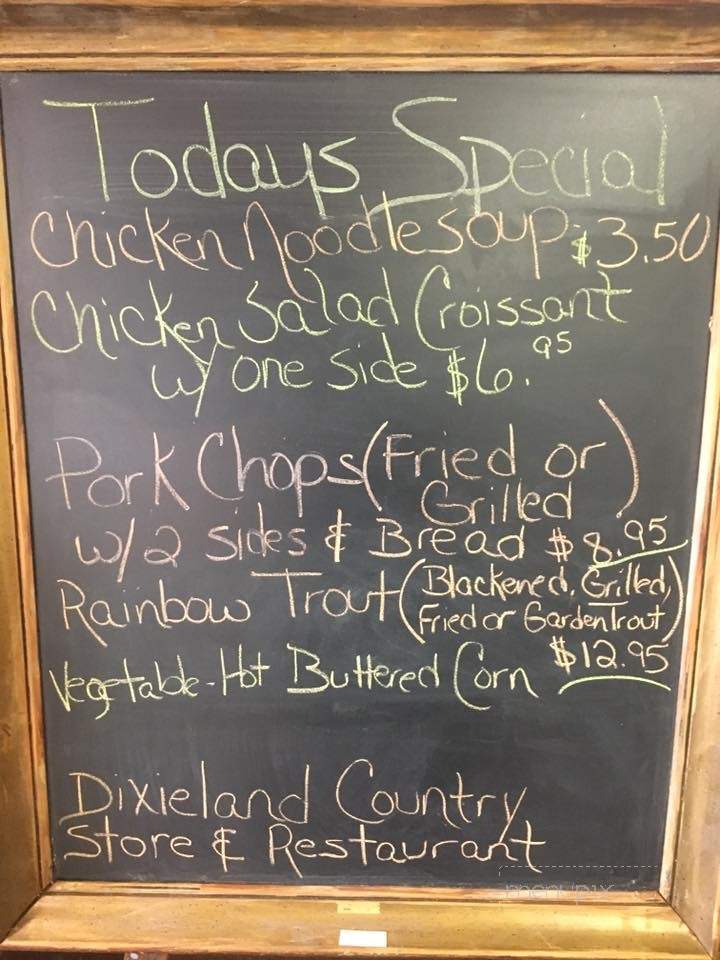 Todays Special
Chicken Noodle soup $3.50
Chicken Salad Croissant
w/ one side $6.95
Pork Chops (Fried or Grilled)
w/2 sides & Bread $8.95
Rainbow Trout (Blackened, Grilled,
Fried or Garden Trout)
$12.95
Vegetable-Hot Buttered Corn
Dixieland Country
Store & Restaurant
menupix